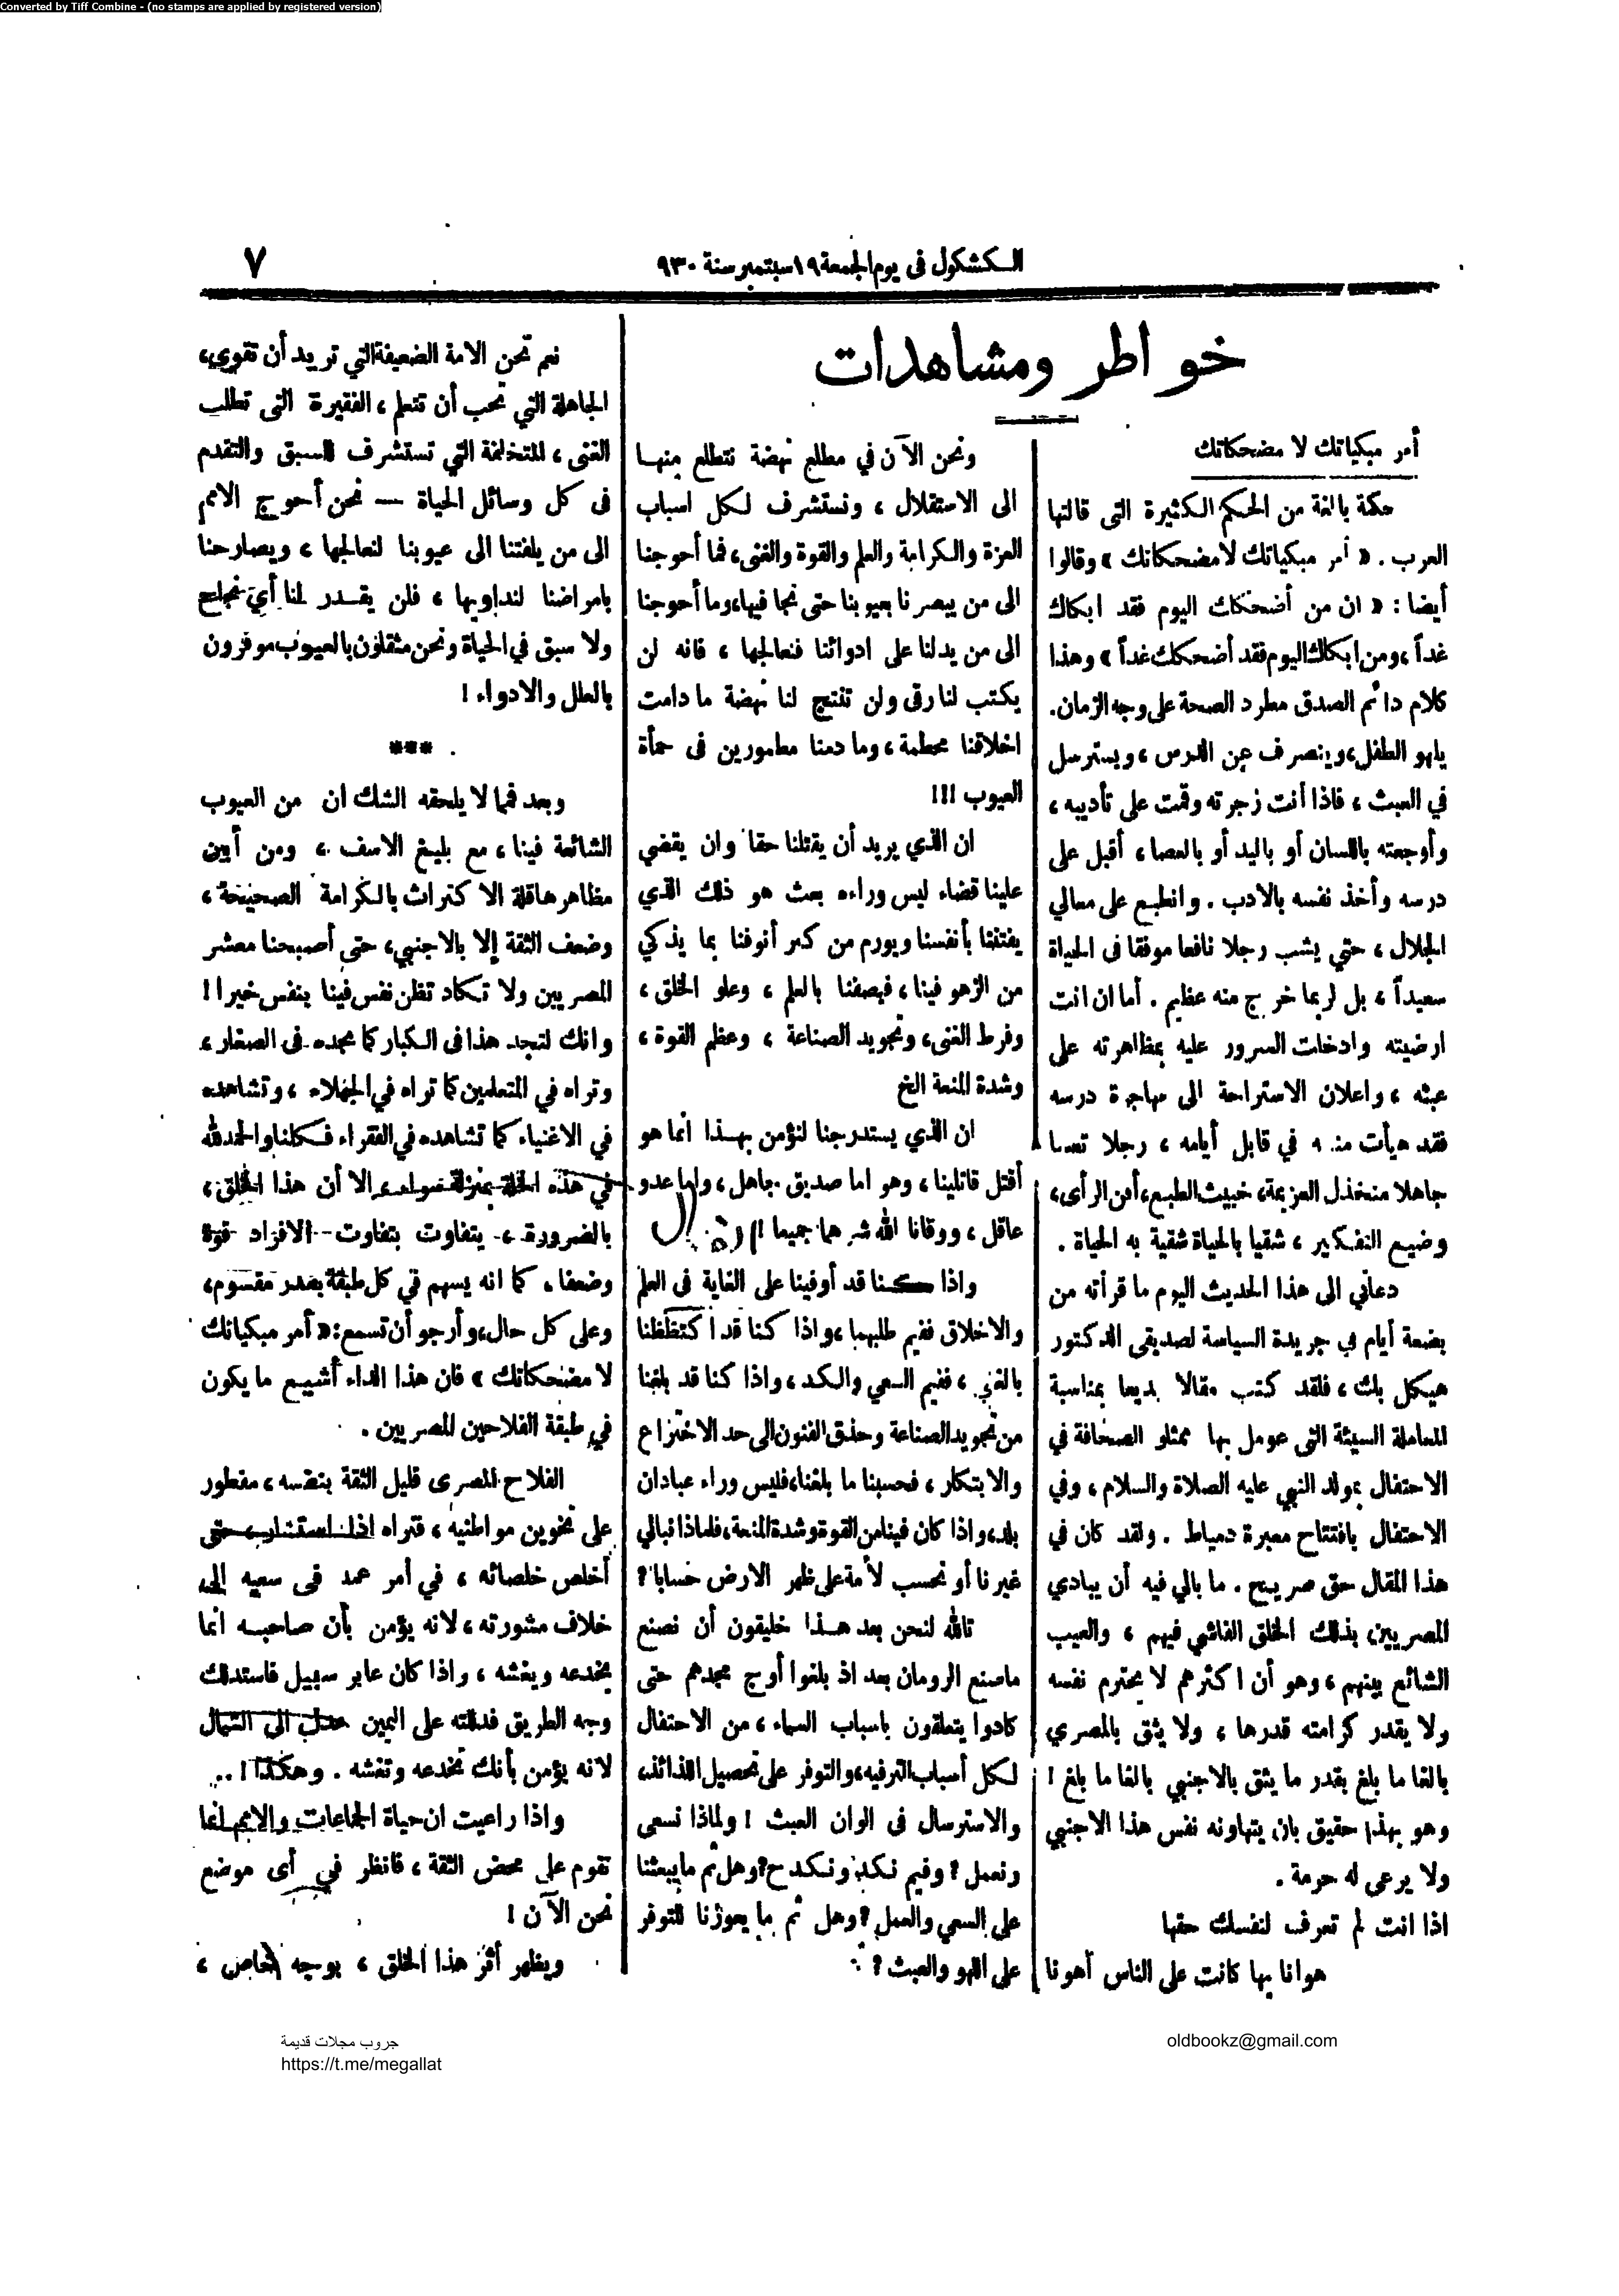 Converted by Tiff Combine - (no stamps are applied by registered version)
الكشكول فى يوم الجمعة ١٩ سبتمبر سنة ٩٣٠
٧
خواطر ومشاهدات
أمر مبكياتك لا مضحكاتك
حكمة بالغة من الحكم الكثيرة التى قالتها
العرب . « أمر مبكياتك لا مضحكاتك » وقالوا
أيضا : « ان من أضحكك اليوم فقد ابكاك
غداً ، ومن ابكاك اليوم فقد أضحكك غداً » وهذا
كلام دائم الصدق مطرد الصحة على وجه الزمان.
يلهو الطفل، وينصرف عن الدرس ، ويسترسل
في العبث ، فاذا أنت زجرته وقمت على تأديبه ،
وأوجعته باللسان أو باليد أو بالعصا ، أقبل على
درسه وأخذ نفسه بالادب . وانطبع على معالي
الجلال ، حتي يشب رجلا نافعا موفقا فى الحياة
سعيداً ، بل لربما خرج منه عظيم . أما ان انت
ارضيته وادخلت السرور عليه بمظاهرته على
عبثه ، واعلان الاستراحة الى مهاجرة درسه
فقد هيأت منه في قابل أيامه ، رجلا تعسا
جاهلا منخذل العزيمة، خبيث الطبع، أفن الرأى،
وضيع التفكير ، شقيا بالحياة شقية به الحياة .
دعاني الى هذا الحديث اليوم ما قرأته من
بضعة أيام في جريدة السياسة لصديقى الدكتور
هيكل بك ، فلقد كتب مقالا بديعا بمناسبة
المعاملة السيئة التى عومل بها ممثلو الصحافة في
الاحتفال بمولد النبي عليه الصلاة والسلام ، وفي
الاحتفال بافتتاح معبرة دمياط . ولقد كان في
هذا المقال حق صريح . ما بالي فيه أن يبادي
المصريين بذلك الخلق الفاشي فيهم ، والعيب
الشائع بينهم ، وهو أن اكثرهم لا يحترم نفسه
ولا يقدر كرامته قدرها ، ولا يثق بالمصري
بالغا ما بلغ بقدر ما يثق بالاجنبي بالغا ما بلغ !
وهو بهذا حقيق بان يتهاونه نفس هذا الاجنبي
ولا يرعى له حرمة .
اذا انت لم تعرف لنفسك حقها
هوانا بها كانت على الناس أهونا
ونحن الآن في مطلع نهضة نتطلع منها
الى الاستقلال ، ونستشرف لكل اسباب
العزة والكرامة والعلم والقوة والغنى، فما أحوجنا
الى من يبصرنا بعيوبنا حتى نجافيها، وما أحوجنا
الى من يدلنا على ادوائنا فنعالجها ، فانه لن
يكتب لنا رقى ولن تنتج لنا نهضة ما دامت
اخلاقنا محطمة ، وما دمنا مطمورين فى حمأة
العيوب !!!
ان الذي يريد أن يقتلنا حقا وان يقضي
علينا قضاء ليس وراءه بعث هو ذلك الذي
يفتننا بأنفسنا ويورم من كبر أنوفنا بما يذكي
من الزهو فينا ، فيصفنا بالعلم ، وعلو الخلق ،
وفرط الغنى، وتجويد الصناعة ، وعظم القوة ،
وشدة المنعة الخ
ان الذي يستدرجنا لنؤمن بهذا انما هو
أقتل قاتلينا ، وهو اما صديق جاهل ، واما عدو
عاقل ، ووقانا الله شرهما جميعا !
واذا كنا قد أوفينا على الغاية فى العلم
والاخلاق ففيم طلبهما ، واذا كنا قد اكتظظنا
بالغني ، ففيم السعي والكد ، واذا كنا قد بلغنا
من تجويد الصناعة وحذق الفنون الى حد الاختراع
والابتكار ، فحسبنا ما بلغنا، فليس وراء عبادان
بلد، واذا كان فينا من القوة وشدة المنعة، فلماذا نبالي
غيرنا أو نحسب لأمة على ظهر الارض حسابا ؟
تالله لنحن بعد هذا خليقون أن نصنع
ماصنع الرومان بعد اذ بلغوا أوج مجدهم حتى
كادوا يتعلقون باسباب السماء ، من الاحتفال
لكل أسباب الترفيه، والتوفر على تحصيل اللذائذ،
والاسترسال فى الوان العبث ! ولماذا نسعى
ونعمل ؟ وفيم نكد ونكدح ؟ وهل ثم ما يبعثنا
على السعي والعمل ؟ وهل ثم ما يعوزنا للتوفر
على اللهو والعبث ؟
نعم نحن الامة الضعيفة التي تريد أن تقوي،
الجاهلة التي تحب أن تتعلم ، الفقيرة التى تطلب
الغنى ، المتخلفة التي تستشرف للسبق والتقدم
فى كل وسائل الحياة — نحن أحوج الامم
الى من يلفتنا الى عيوبنا لنعالجها ، ويصارحنا
بامراضنا لنداويها ، فلن يقدر لنا أي نجاح
ولا سبق في الحياة ونحن مثقلون بالعيوب موقرون
بالعلل والادواء !
***
وبعد فمما لا يلحقه الشك ان من العيوب
الشائعة فينا ، مع بليغ الاسف ، ومن أبين
مظاهرها قلة الاكتراث بالكرامة الصحيحة ،
وضعف الثقة إلا بالاجنبي، حتى أصبحنا معشر
المصريين ولا تكاد تظن نفس فينا بنفس خيرا !
وانك لتجد هذا فى الكبار كما تجده فى الصغار ،
وتراه في المتعلمين كما تراه في الجهلاء ، وتشاهده
في الاغنياء كما تشاهده في الفقراء فكلنا والحمد لله
في هذه الخلة بمنزلة سواء، الا أن هذا الخلق ،
بالضرورة ، يتفاوت بتفاوت الافراد قوة
وضعفا ، كما انه يسهم في كل طبقة بقدر مقسوم،
وعلى كل حال، وأرجو أن تسمع : « أمر مبكياتك
لا مضحكاتك » فان هذا الداء أشيع ما يكون
في طبقة الفلاحين المصريين .
الفلاح المصرى قليل الثقة بنفسه ، مفطور
على تخوين مواطنيه ، فتراه اذا استشار ، حتى
أخلص خلصائه ، في أمر عمد فى سعيه الى
خلاف مشورته ، لانه يؤمن بأن صاحبه انما
يخدعه ويغشه ، واذا كان عابر سبيل فاستدلك
وجه الطريق فدللته على اليمين عدل الى الشمال
لانه يؤمن بأنك تخدعه وتغشه . وهكذا ! ..
واذا راعيت ان حياة الجماعات والامم انما
تقوم على محض الثقة ، فانظر في أى موضع
نحن الآن !
ويظهر أثر هذا الخلق ، بوجه خاص ،
جروب مجلات قديمة
https://t.me/megallat
oldbookz@gmail.com